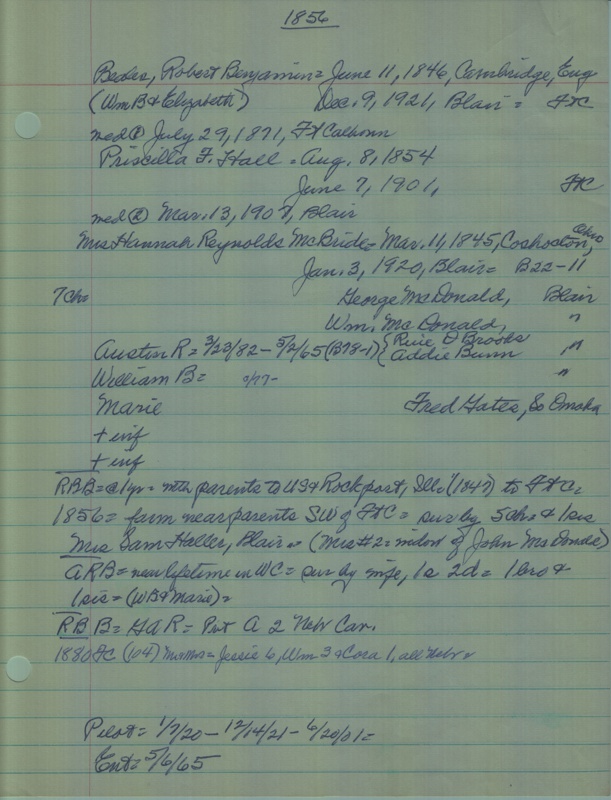 1856
Beales, Robert Benjamin = June 11, 1846, Cambridge, Eng
(Wm B & Elizabeth) Dec. 9, 1921, Blair = FtC
med ① July 29, 1871, Ft Calhoun
Priscilla F. Hall = Aug. 8, 1854
June 7, 1901, FtC
med ② Mar. 13, 1907, Blair
Mrs Hannah Reynolds McBride = Mar. 11, 1845, Coshocton, Ohio
Jan. 3, 1920, Blair = B22-11
7 Ch = George McDonald, Blair
Wm. McDonald, "
Austin R = 3/23/82 - 5/2/65 (B78-1) { Ruie D Brooks
Addie Bunn "
William B = 9/77- "
Marie Fred Gates, So Omaha
+ inf
+ inf
RBB = @ 1 yr = with parents to USA Rockport, Ill. (1847) to FtC =
1856 = farm near parents SW of FtC = sur by 5 ch = & 1 sis
Mrs Sam Haller, Blair = (Mrs #2 = widow of John McDonald)
ARB = near lifetime in WC = sur by wife, 1s 2d = 1 bro &
1 sis = (WB & Marie) =
RBB = GAR = Pvt A 2 Nebr Cav.
1880 FC (104) = Jessie 6, Wm 3 & Cora 1, all Nebr =
Pilot = 1/7/20 - 12/14/21 - 6/20/01 =
Ent = 5/6/65